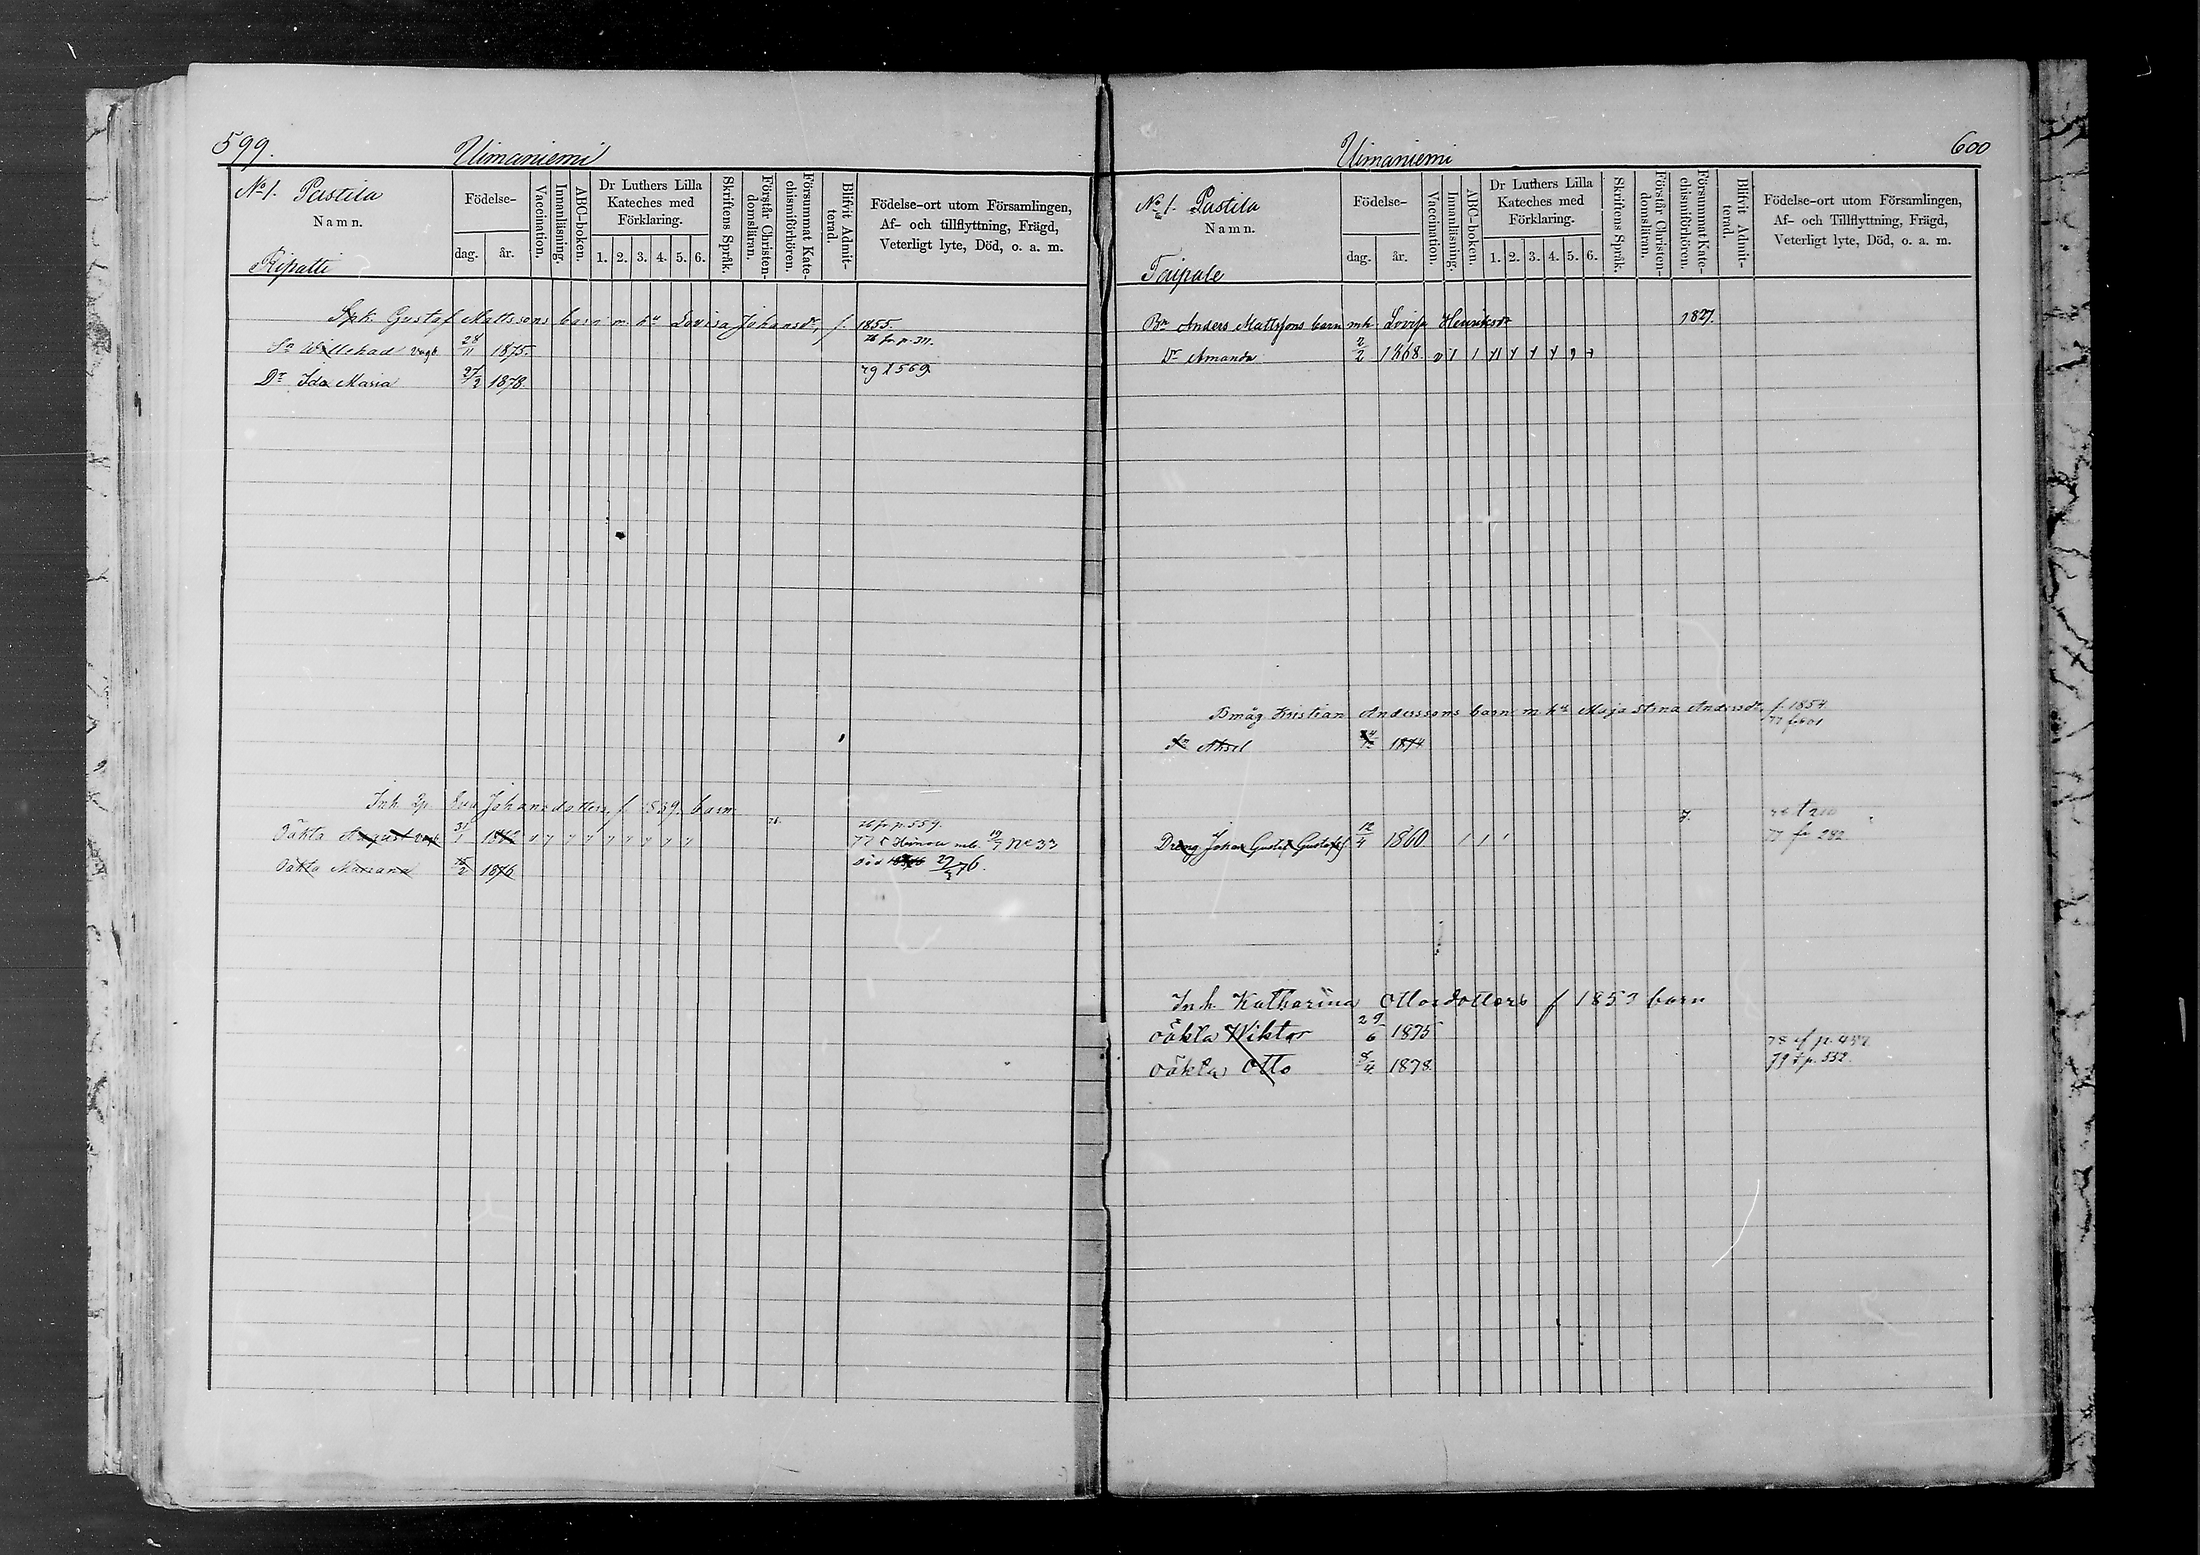 599.
Uimaniemi
No 1. Pastila
Namn.
Ripatti
Födelse-
dag.
år.
Vaccination.
Innanläsning.
ABC-boken.
Dr Luthers Lilla
Kateches med
Förklaring.
1. 2. 3. 4. 5. 6.
Skriftens Språk.
Förstår Christen-
domsläran.
Försummat Kate-
chismiförhören.
Blifvit Admit-
terad.
Födelse-ort utom Församlingen,
Af- och tillflyttning, Frägd,
Veterligt lyte, Död, o. a. m.
Spk. Gustaf Mattssons barn m hu Lovisa Johansdr, f. 1855.
76 fr. p. 311.
Sn Willehad 28/11 1875.
Dr Ida Maria 27/2 1878.
79 t 569.
Inh. Eva Johansdotters, f. 1839. barn
76 fr. p. 559.
Oäkta August 31/1 1862
19/7 No 33
Oäkta Mariana 1876
död 76.
600
Uimaniemi
No 1. Pastila
Namn.
Taipale
Födelse-
dag.
år.
Vaccination.
Innanläsning.
ABC-boken.
Dr Luthers Lilla
Kateches med
Förklaring.
1. 2. 3. 4. 5. 6.
Skriftens Språk.
Förstår Christen-
domsläran.
Försummat Kate-
chismiförhören.
Blifvit Admit-
terad.
Födelse-ort utom Församlingen,
Af- och Tillflyttning, Frägd,
Veterligt lyte, Död, o. a. m.
Bn Anders Mattssons barn mh Lovisa Henriksdr 1827.
Dr Amanda 2/2 1868
Bmåg Kristian Anderssons barn m hu Maja Stina Andersdr f. 1854
Sn Aksel 1874
76 t 210
Dreng Johan Gustaf Gustafss 12/4 1860
77 fr 282.
Inh. Katharina Ottosdotters f 1853 barn
oäkta Wiktor 29/6 1875
oäkta Otto 8/4 1878.
79 t p. 332.